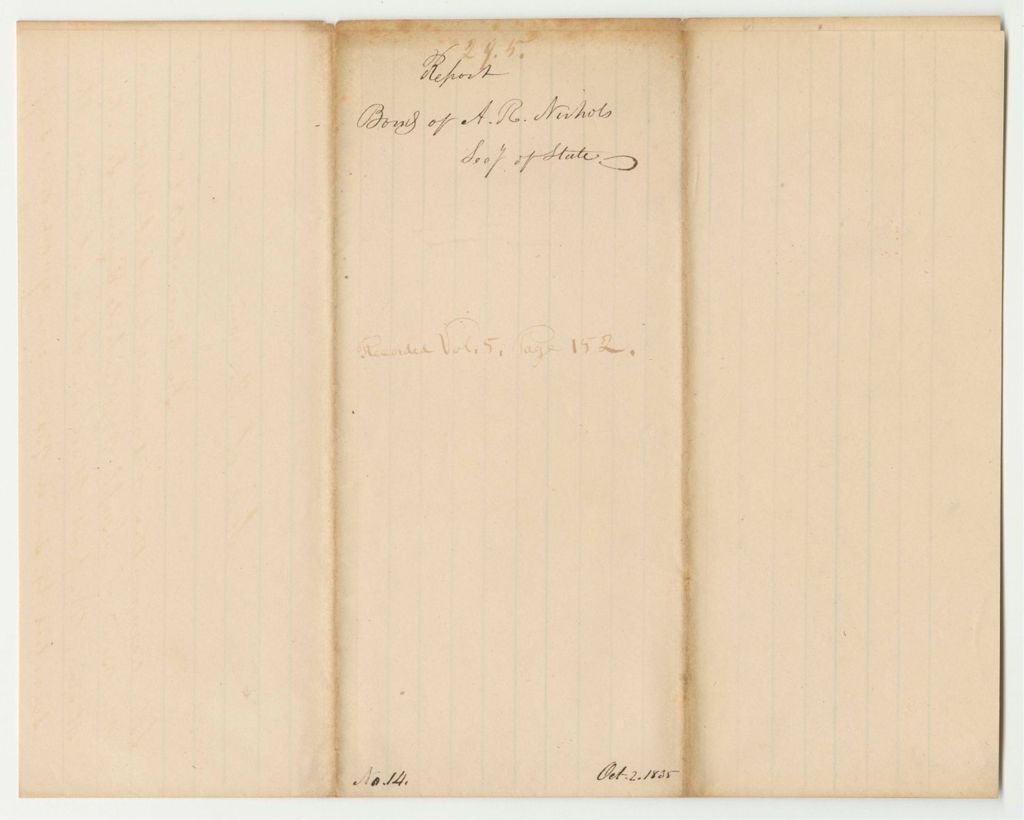 295.
Report
Bond of A. R. Nichols
Secy of State
Recorded Vol. 5. Page 152.
No. 14.
Oct. 2. 1835